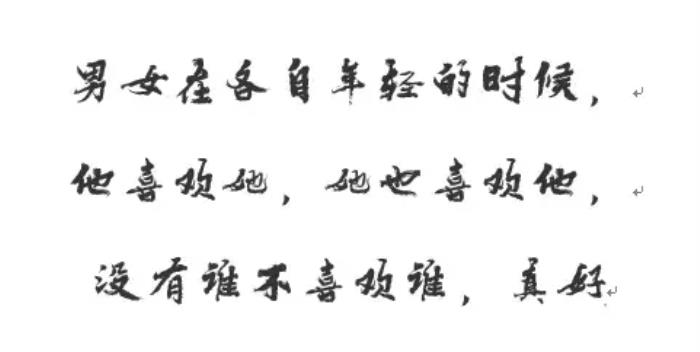 男女在各自年轻的时候，
他喜欢她，她也喜欢他，
没有谁不喜欢谁，真好